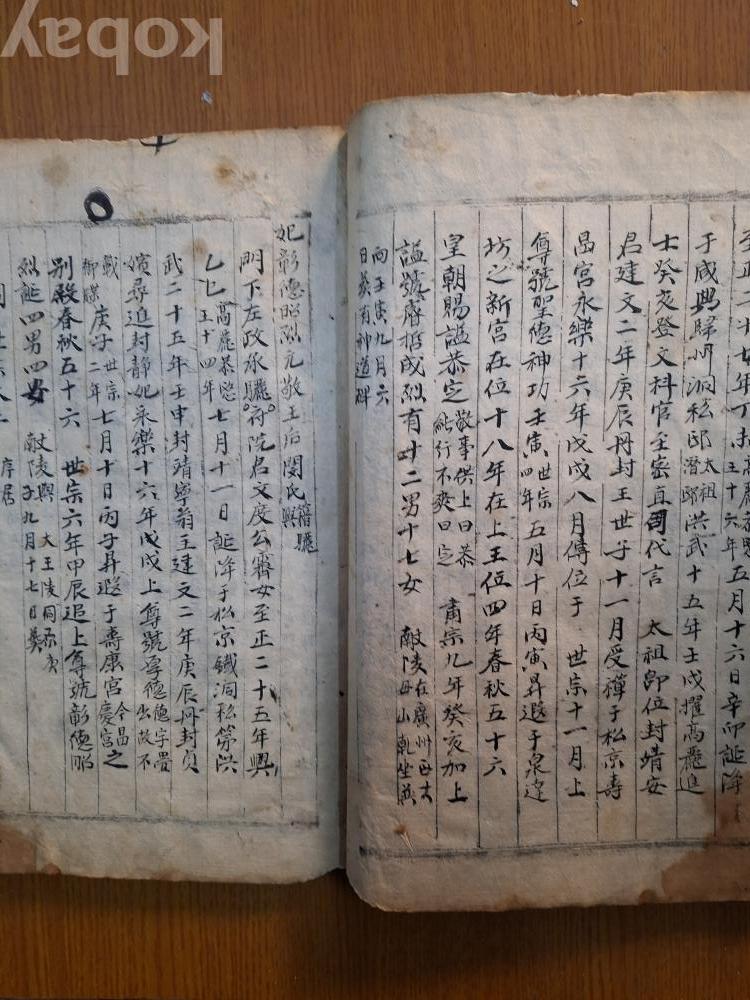 kobay
五月十六日辛卯誕降
于咸興歸州洞私邸太祖潛邸洪武十五年壬戌擢高麗進
士癸亥登文科官至密直司代言 太祖卽位封靖安
君建文二年庚辰冊封王世子十一月受禪于松京壽
昌宮永樂十六年戊戌八月傳位于 世宗十一月上
尊號聖德神功壬寅世宗四年五月十日丙寅昇遐于泉達
坊之新宮在位十八年在上王位四年春秋五十六
皇朝賜諡恭定敬事供上曰恭 行不爽曰定 肅宗九年癸亥加上
諡號睿哲成烈有十二男十七女 獻陵在廣州 母山乾坐
向壬寅九月六
日葬有神道碑
妃彰德昭烈元敬王后閔氏籍驪興
門下左政丞驪府院君文度公霽女至正二十五年
乙巳高麗恭愍王十四年七月十一日誕降于松京鐵洞私第洪
武二十五年壬申封靖寧翁主建文二年庚辰冊封貞
嬪尋進封靜妃永樂十六年戊戌上尊號厚德德字疊出故不
載御牒庚子世宗二年七月十日丙子昇遐于壽康宮今昌慶宮之
別殿春秋五十六 世宗六年甲辰追上尊號彰德昭
烈誕四男四女 獻陵與大王陵同原庚子九月十七日葬